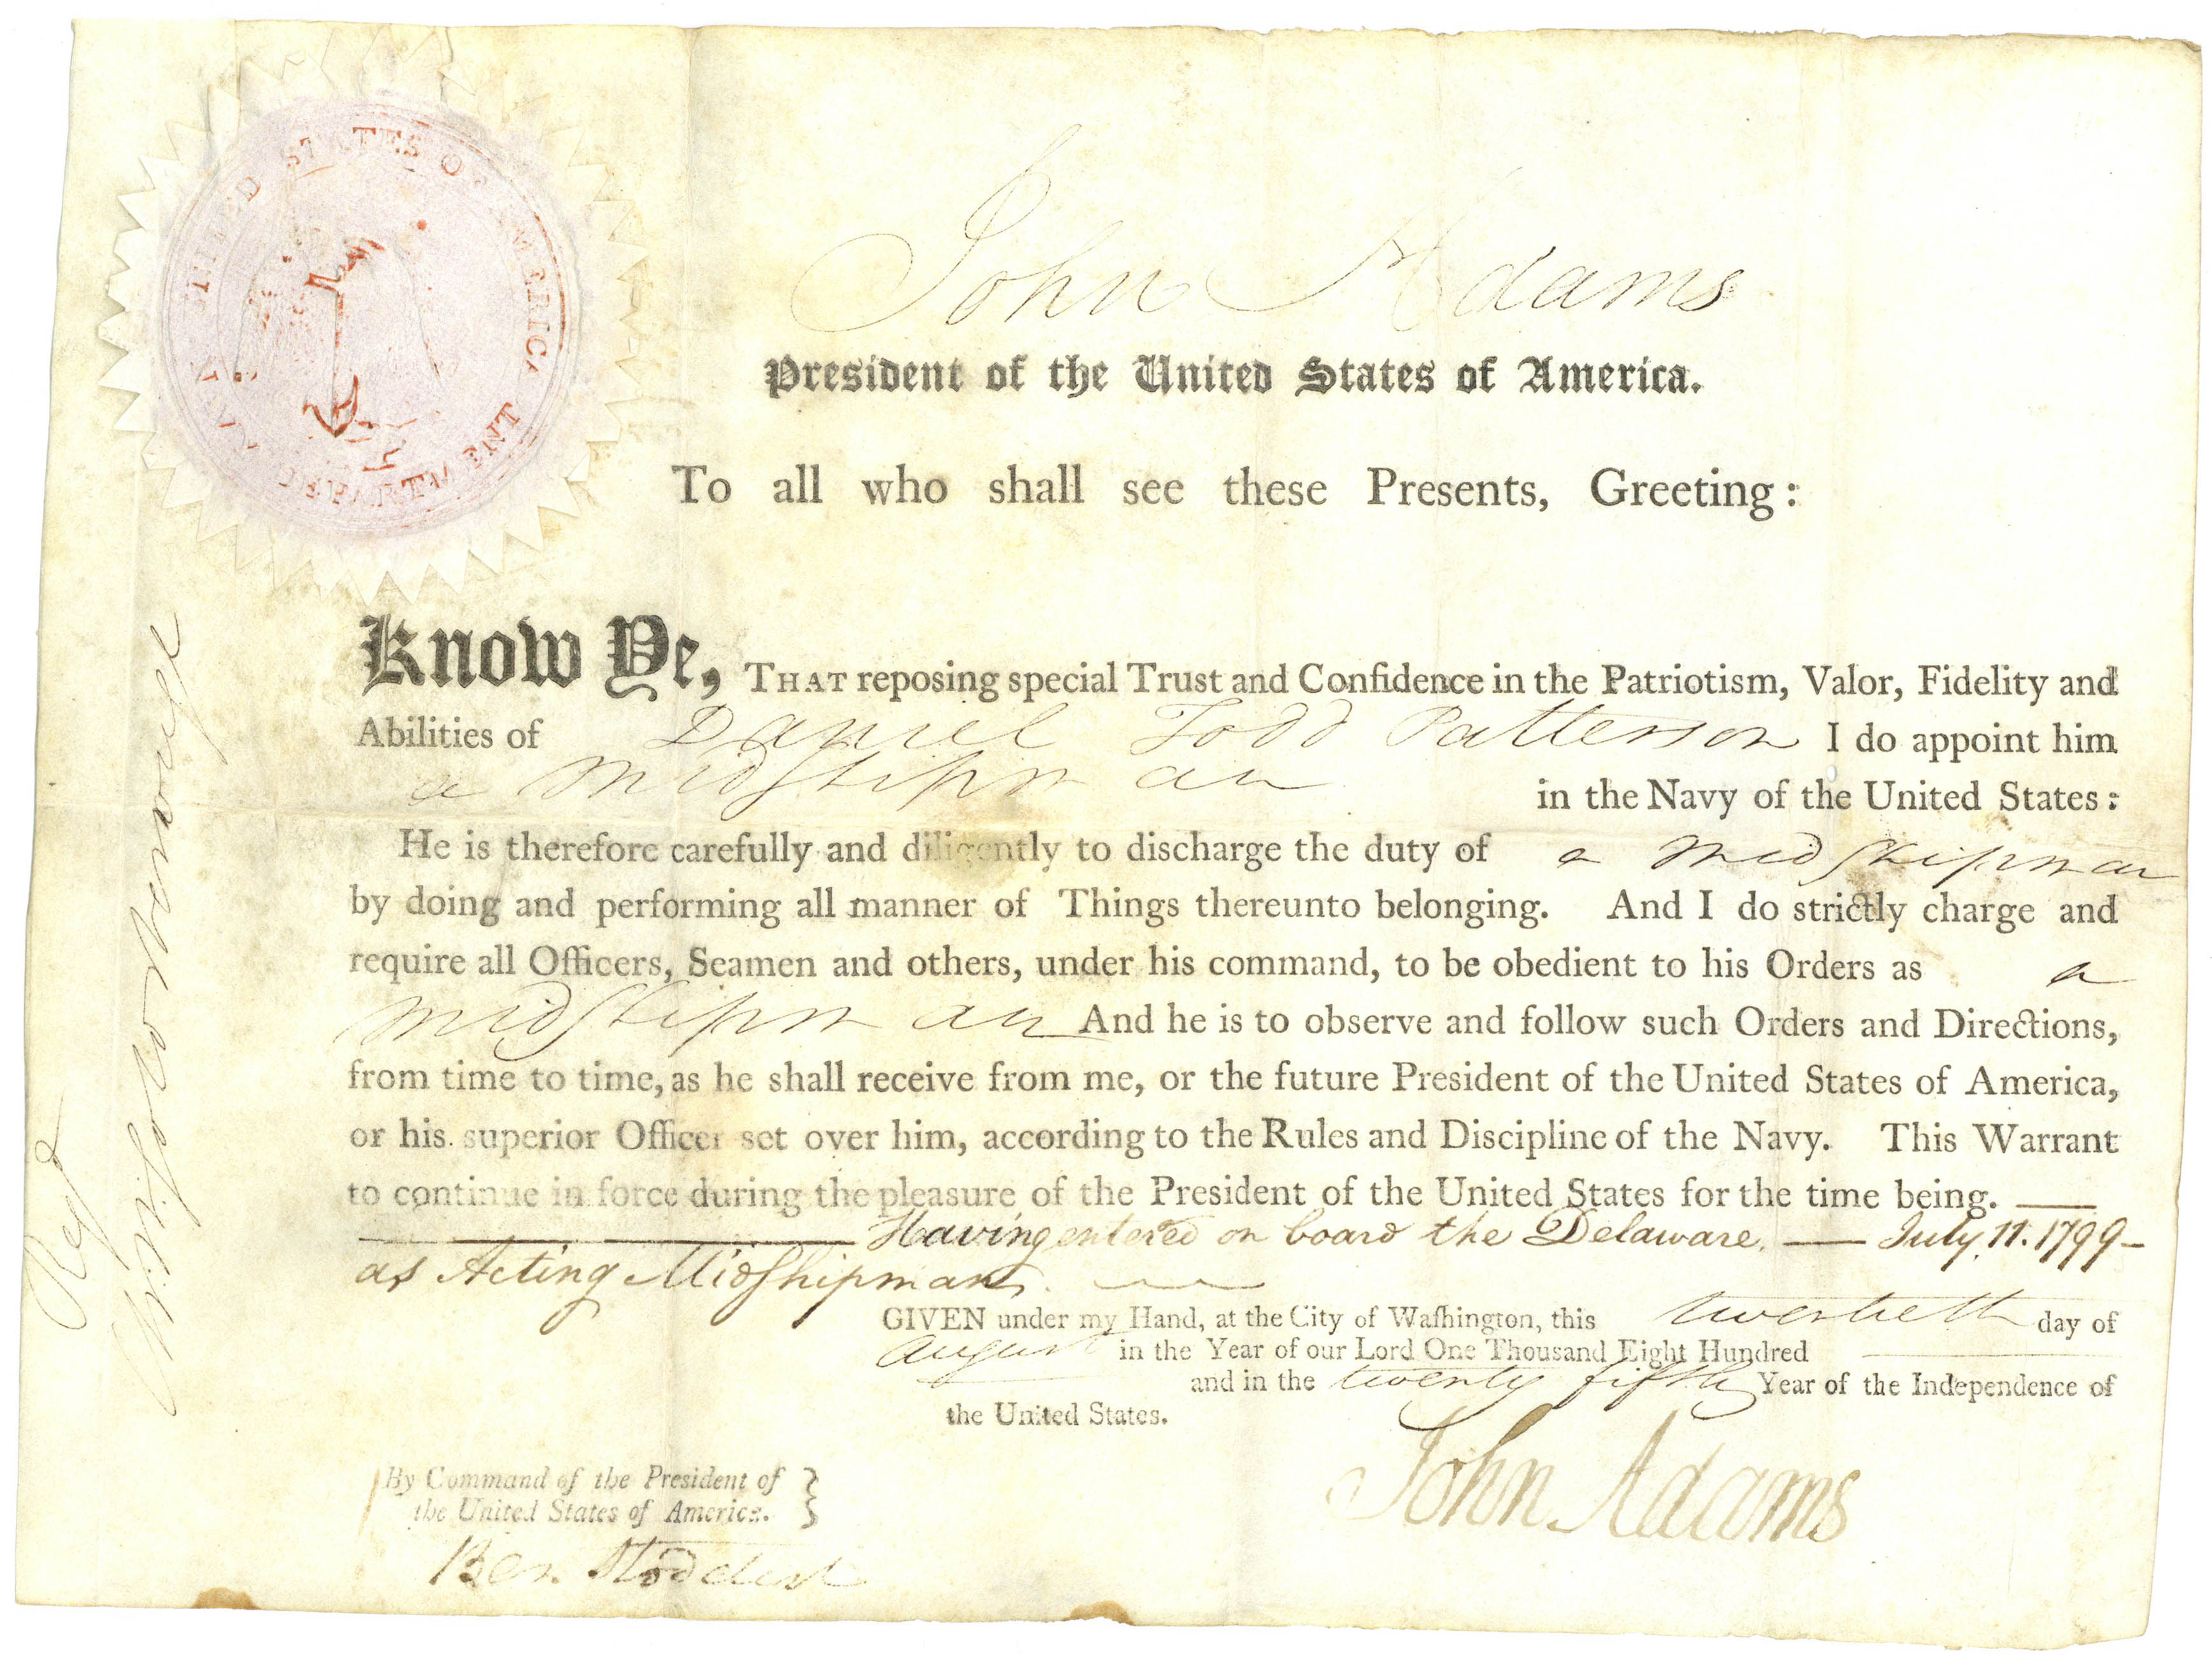 UNITED STATES OF AMERICA
NAVY DEPARTMENT
John Adams
President of the United States of America.
To all who shall see these Presents, Greeting:
Know Ye, THAT reposing special Trust and Confidence in the Patriotism, Valor, Fidelity and
Abilities of Daniel Todd Patterson I do appoint him
a Midshipman in the Navy of the United States:
He is therefore carefully and diligently to discharge the duty of a Midshipman
by doing and performing all manner of Things thereunto belonging. And I do strictly charge and
require all Officers, Seamen and others, under his command, to be obedient to his Orders as a
Midshipman And he is to observe and follow such Orders and Directions,
from time to time, as he shall receive from me, or the future President of the United States of America,
or his superior Officer set over him, according to the Rules and Discipline of the Navy. This Warrant
to continue in force during the pleasure of the President of the United States for the time being. —
Having entered on board the Delaware, — July, 11. 1799 –
as Acting Midshipman.
GIVEN under my Hand, at the City of Waſhington, this twentieth day of
August in the Year of our Lord One Thousand Eight Hundred
and in the twenty fifth Year of the Independence of
the United States.
John Adams
By Command of the President of
the United States of America.
Ben Stoddert
Regd